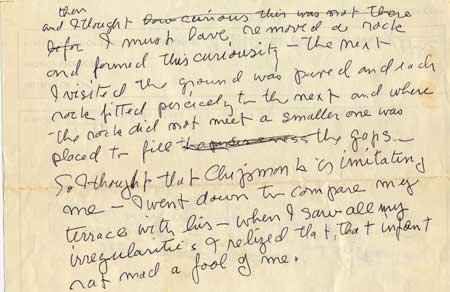 then
and I thought how curious this was not there
befor I must have removed a rock
and formed this curiosity - the next
I visited the ground was paved and each
rock fitted percicely to the next and where
the rock did not meet a smaller one was
placed to fill the gaps -
So I thought that Chipmonk is imitating
me - I went down to compare my
terrace with his - when I saw all my
irregularities & relized that, that infant
rat mad a fool of me.